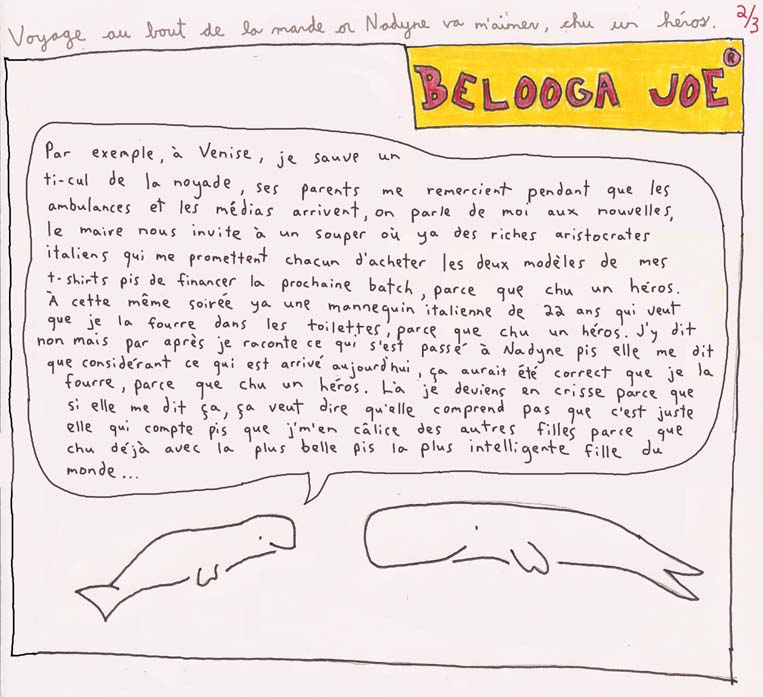 Voyage au bout de la marde or Nadyne va m'aimer, chu un héros. 2/3
BELOOGA JOE ®
Par exemple, à Venise, je sauve un
ti-cul de la noyade, ses parents me remercient pendant que les
ambulances et les médias arrivent, on parle de moi aux nouvelles,
le maire nous invite à un souper où ya des riches aristocrates
italiens qui me promettent chacun d'acheter les deux modèles de mes
t-shirts pis de financer la prochaine batch, parce que chu un héros.
À cette même soirée ya une mannequin italienne de 22 ans qui veut
que je la fourre dans les toilettes, parce que chu un héros. J'y dit
non mais par après je raconte ce qui s'est passé à Nadyne pis elle me dit
que considérant ce qui est arrivé aujourd'hui, ça aurait été correct que je la
fourre, parce que chu un héros. Là je deviens en crisse parce que
si elle me dit ça, ça veut dire qu'elle comprend pas que c'est juste
elle qui compte pis que j'm'en câlice des autres filles parce que
chu déjà avec la plus belle pis la plus intelligente fille du
monde...